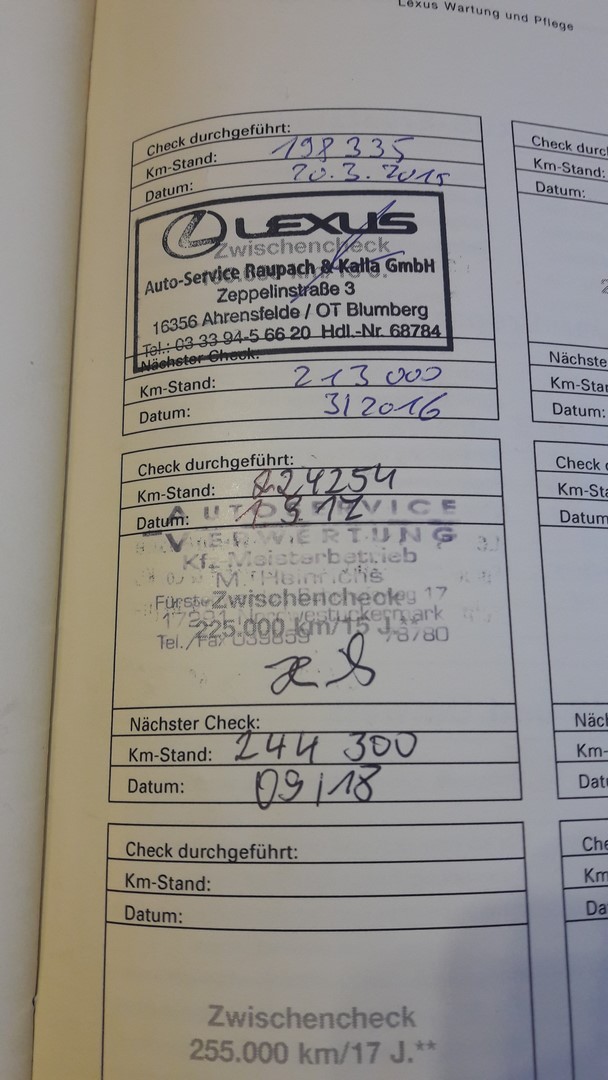 Lexus Wartung und Pflege
Check durchgeführt:
Km-Stand: 198 335
Datum: 20.3.2015
LEXUS
Zwischencheck
Auto-Service Raupach & Kalla GmbH
Zeppelinstraße 3
16356 Ahrensfelde / OT Blumberg
Tel.: 03 33 94-5 66 20 Hdl.-Nr. 68784
Nächster Check:
Km-Stand: 213 000
Datum: 3/2016
Check durchgeführt:
Km-Stand: 224254
Datum: 1 9.17
AUTOSERVICE
VERWERTUNG
Kfz Meisterbetrieb
M. Heinrichs
Zwischencheck 17
225.000 km/15 J.**
Tel./Fax
Nächster Check:
Km-Stand: 244 300
Datum: 09/18
Check durchgeführt:
Km-Stand:
Datum:
Zwischencheck
255.000 km/17 J.**
Km-Stand:
Datum:
Nächste
Km-Stand
Datum:
Check
Datum